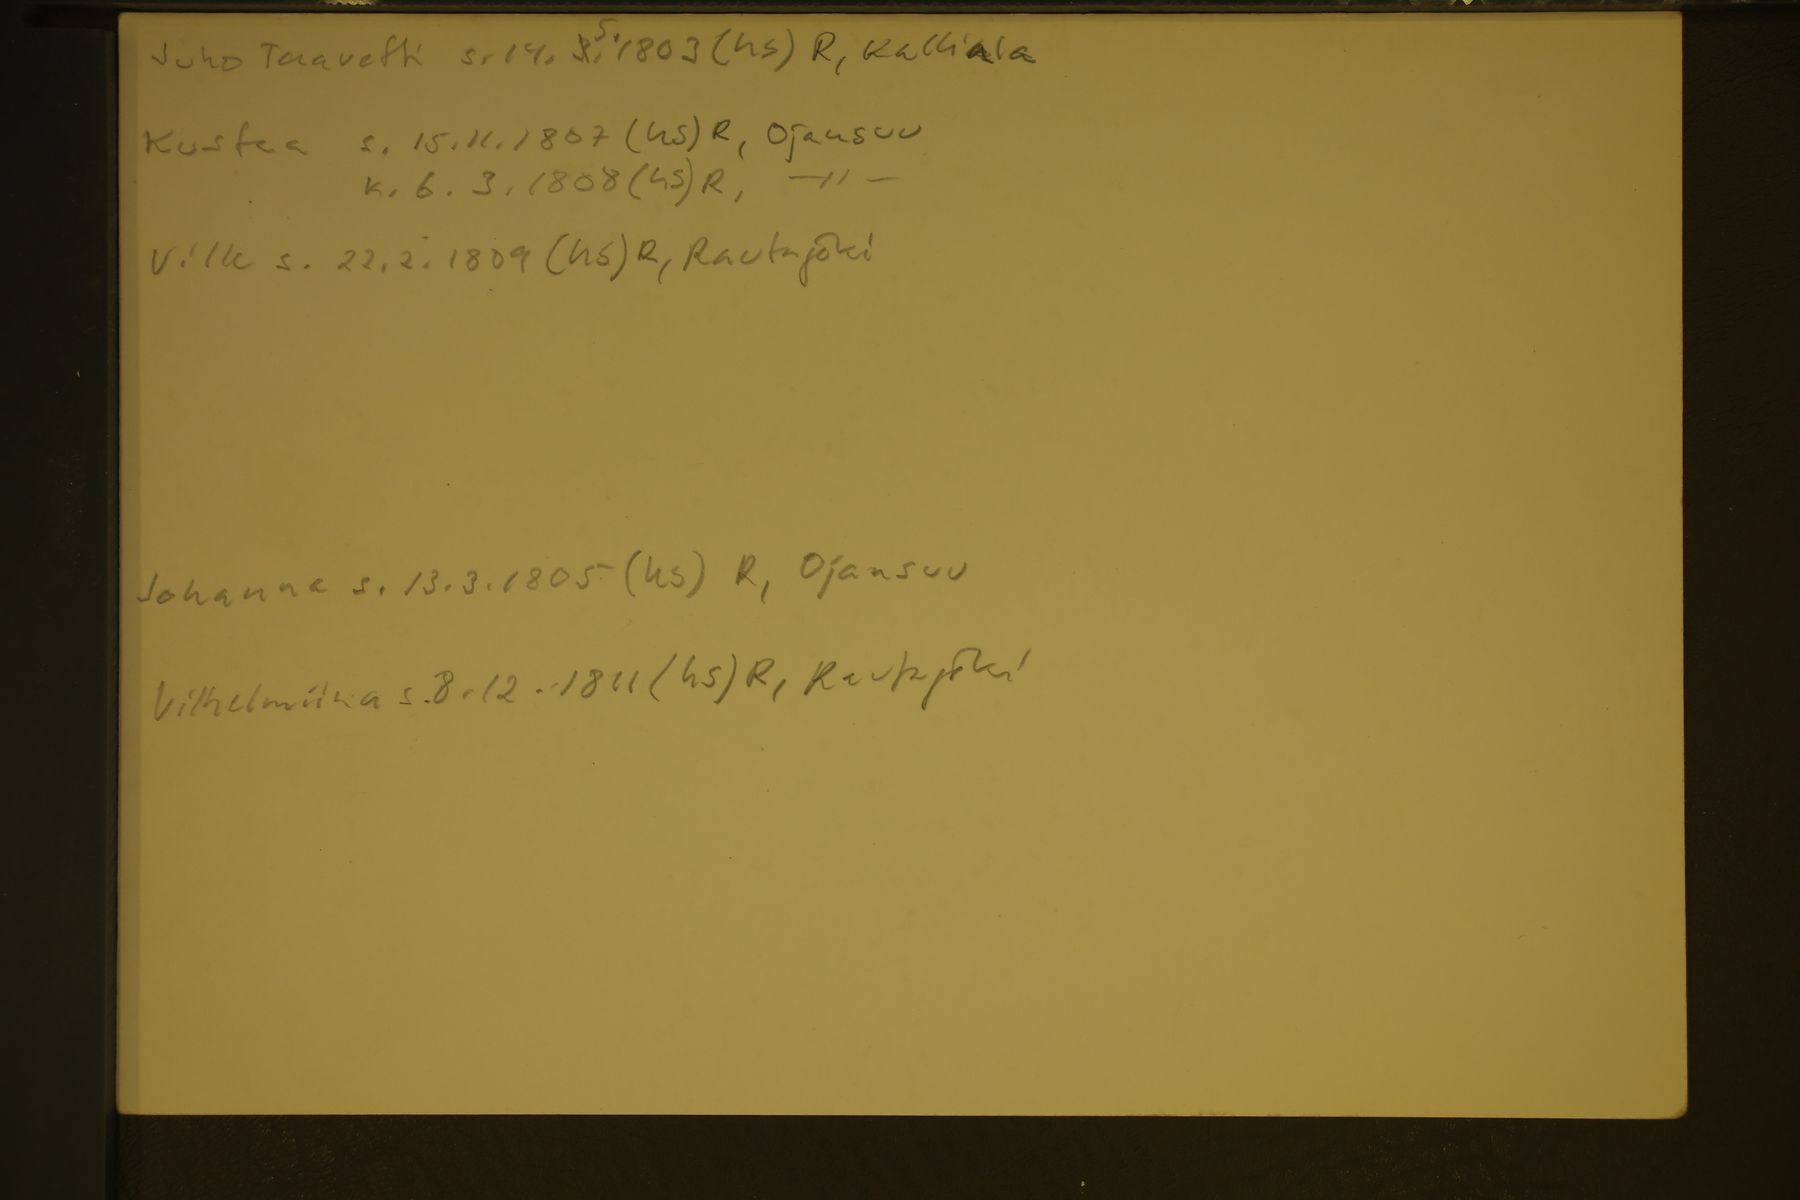 Juho Taavetti s. 14. 5. 1803 (hs) R, Kalliala
Kustaa s. 15.11.1807 (hs) R, Ojansuu
k. 6. 3. 1808 (hs) R, —"—
Ville s. 22.2.1809 (hs) R, Rautajoki
Johanna s. 13.3.1805 (hs) R, Ojansuu
Vilhelmiina s. 8.12.1811 (hs) R, Rautajoki